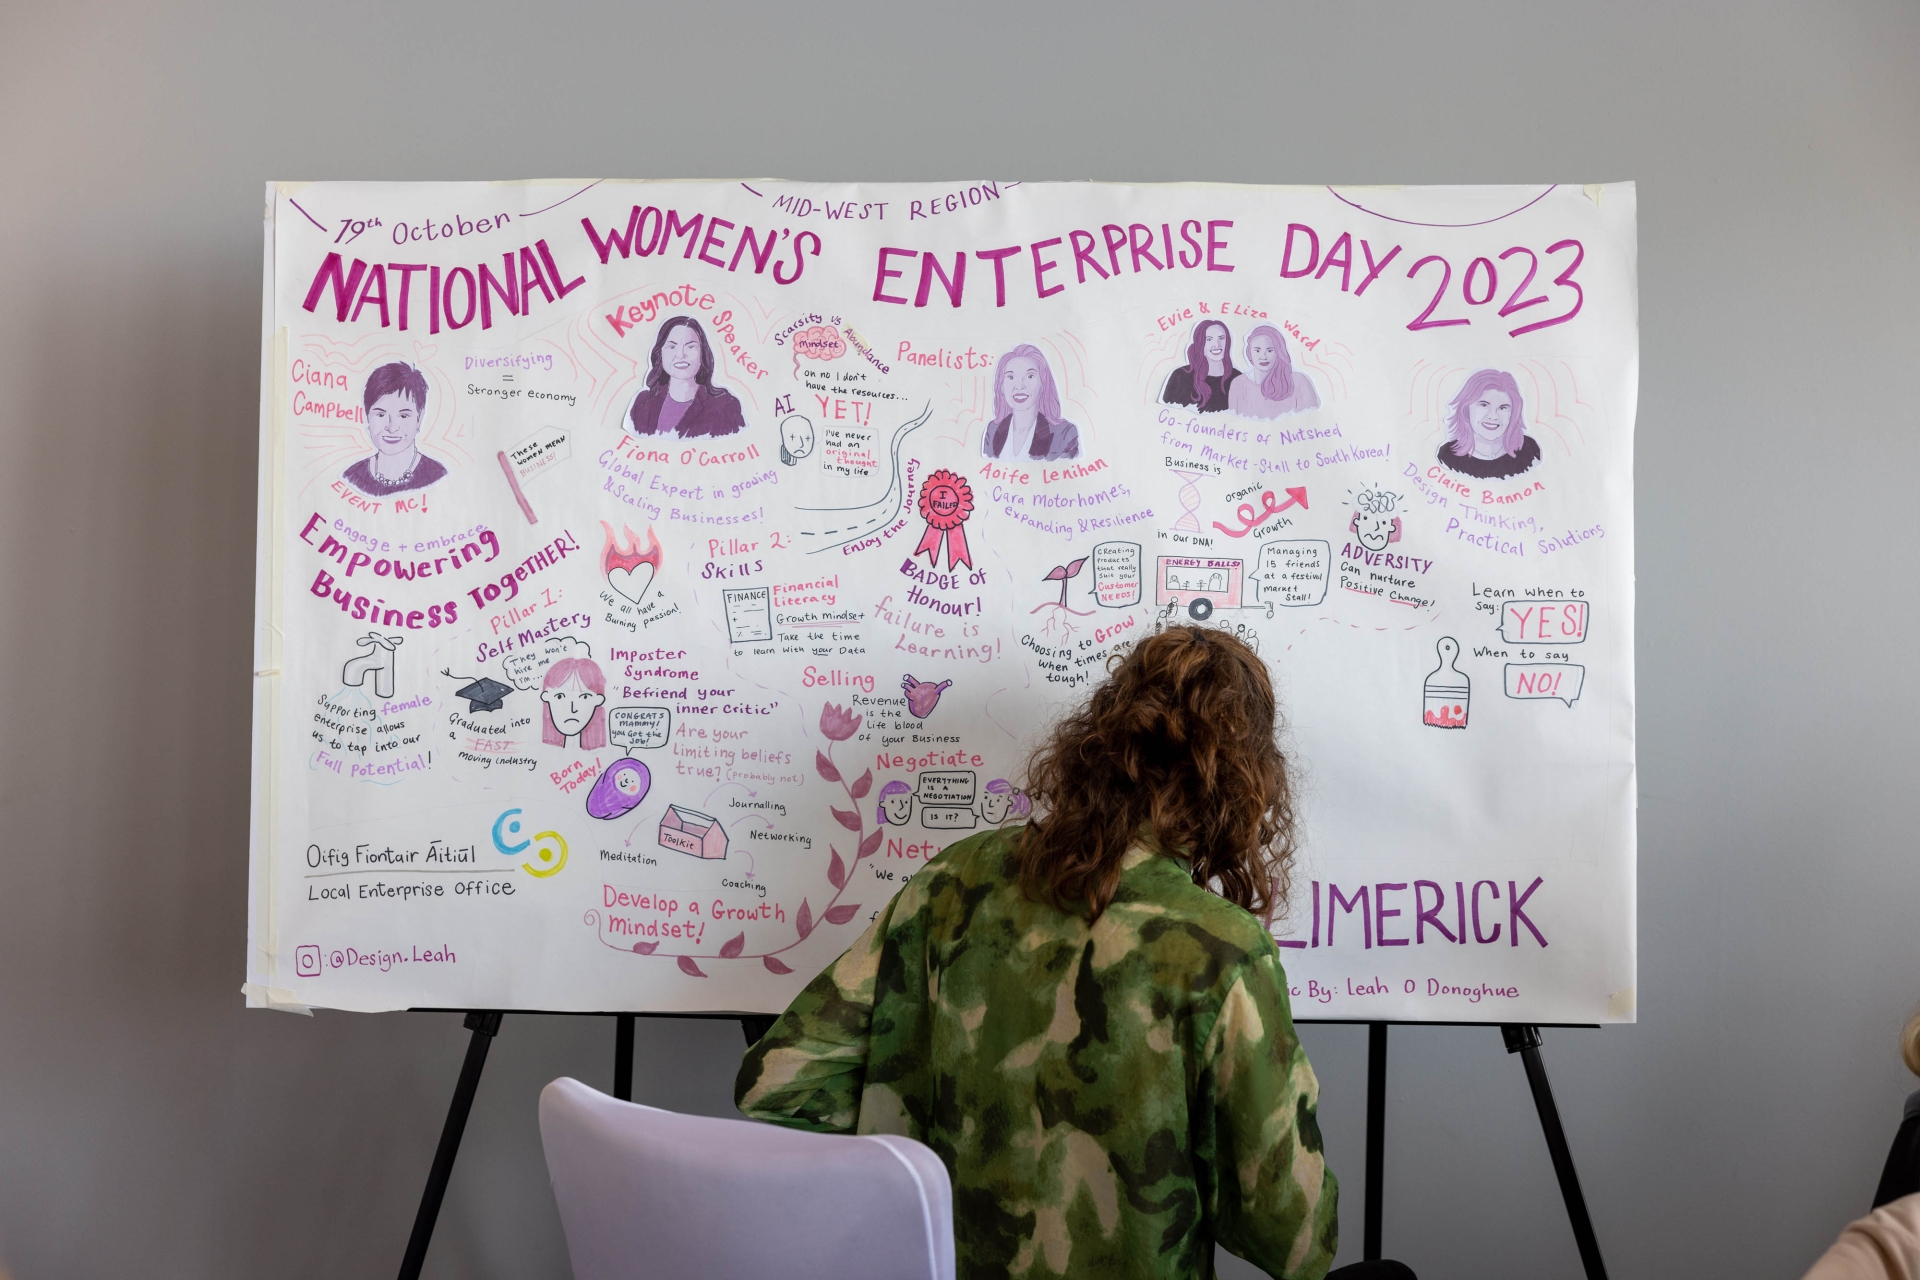 19th October
MID-WEST REGION
NATIONAL WOMEN'S ENTERPRISE DAY 2023
Ciana
Campbell
EVENT MC!
Diversifying
=
Stronger economy
These
women MEAN
BUSINESS!
engage + embrace
Empowering
Business Together!
Supporting female
enterprise allows
us to tap into our
Full Potential!
Oifig Fiontair Āitiūl
Local Enterprise Office
@Design.Leah
Keynote Speaker
Fiona O'Carroll
Global Expert in growing
& Scaling Businesses!
Scarsity vs Abundance
mindset
oh no I don't
have the resources...
YET!
AI
I've never
had an
original
thought
in my life
Enjoy the Journey
We all have a
Burning passion!
Pillar 1:
Self Mastery
They won't
hire me
I'm...
Graduated into
a FAST
moving industry
Imposter
Syndrome
"Befriend your
inner critic"
CONGRATS
MAMMY!
you Got the
Job!
Born
Today!
Are your
limiting beliefs
true? (probably not)
Toolkit
Journalling
Networking
Coaching
Meditation
Develop a Growth
mindset!
Pillar 2:
Skills
FINANCE
Financial
Literacy
Growth mindset
Take the time
to learn with your Data
I
FAILED
BADGE of
Honour!
failure is
Learning!
Selling
Revenue
is the
Life blood
of your Business
Negotiate
EVERYTHING
IS A
NEGOTIATION
IS IT?
Net
"We a
f
Panelists:
Aoife Lenihan
Cara Motorhomes,
expanding & Resilience
Creating
products
that really
suit your
Customer
NEEDS!
Choosing to Grow
when times are
tough!
Evie & Eliza Ward
Co-founders of Nutshed
from Market-Stall to South Korea!
Business is
in our DNA!
organic
Growth
ENERGY BALLS!
Managing
15 friends
at a festival
market
Stall!
Claire Bannon
Design Thinking,
Practical Solutions
ADVERSITY
Can nurture
Positive Change!
Learn when to
say: YES!
When to say
NO!
LIMERICK
ic By: Leah O Donoghue